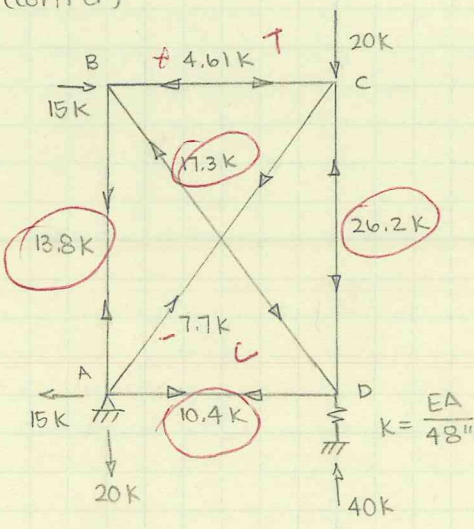 20K
B + 4.61K T C
15K
17.3K
13.8K
26.2K
- 7.7K C
A D
15K 10.4K K = EA/48"
20K
40K